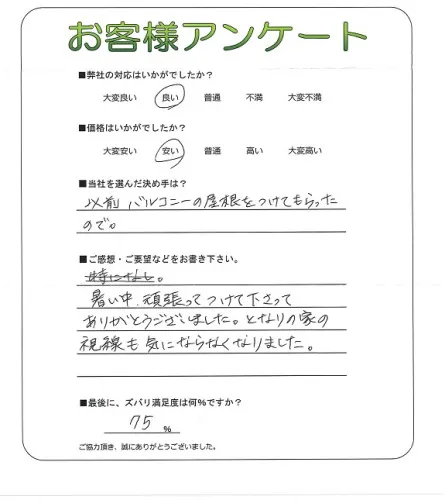 お客様アンケート
■弊社の対応はいかがでしたか？
大変良い 良い 普通 不満 大変不満
■価格はいかがでしたか？
大変安い 安い 普通 高い 大変高い
■当社を選んだ決め手は？
以前 バルコニーの屋根をつけてもらった
ので。
■ご感想・ご要望などをお書き下さい。
特になし。
暑い中、頑張ってつけて下さって
ありがとうございました。となりの家の
視線も気にならなくなりました。
■最後に、ズバリ満足度は何％ですか？
75 ％
ご協力頂き、誠にありがとうございました。